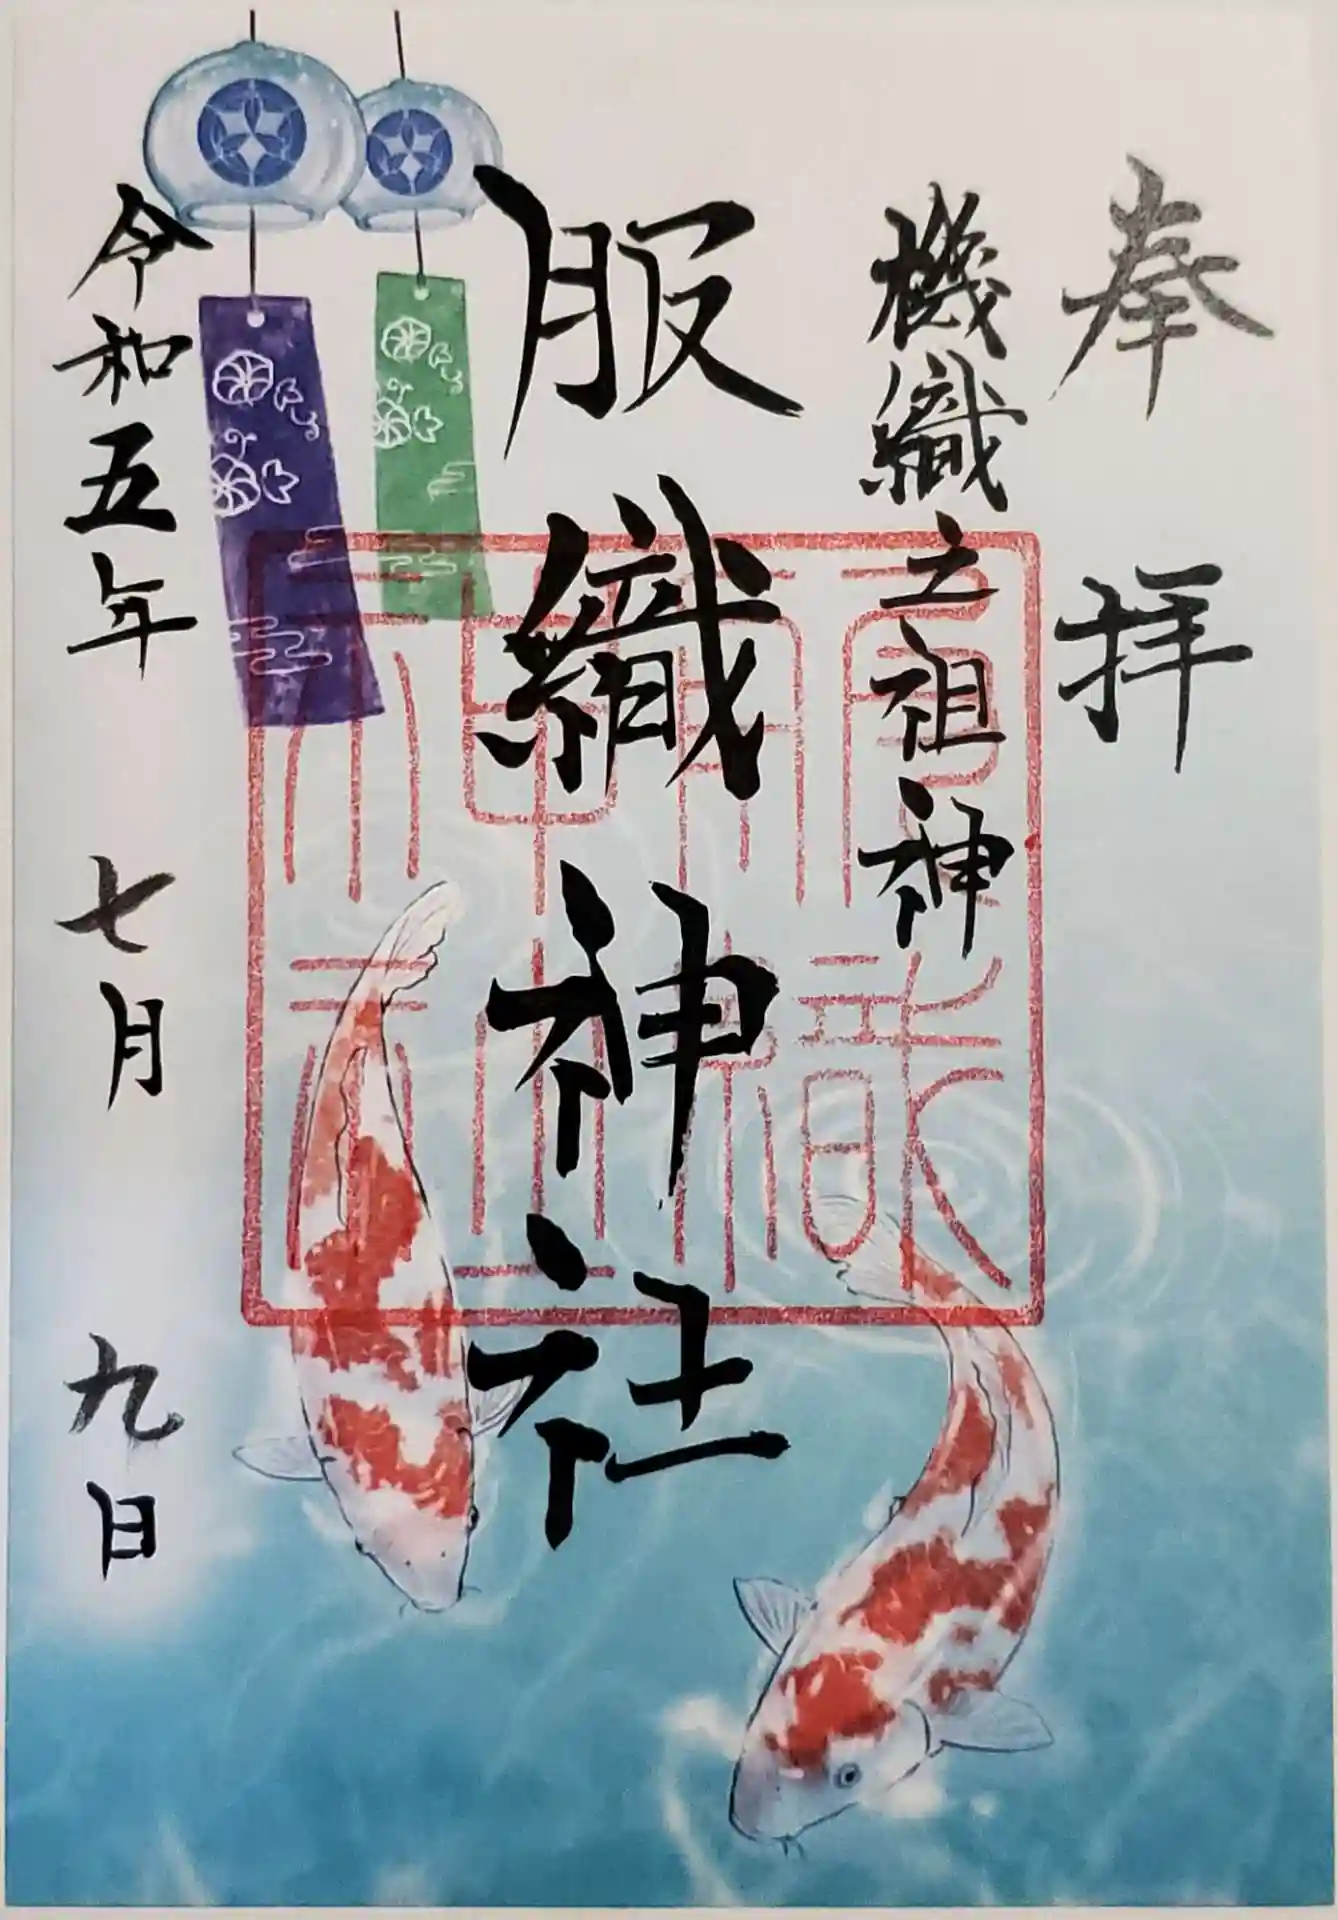 奉拝
機織之祖神
服織神社
令和五年 七月 九日